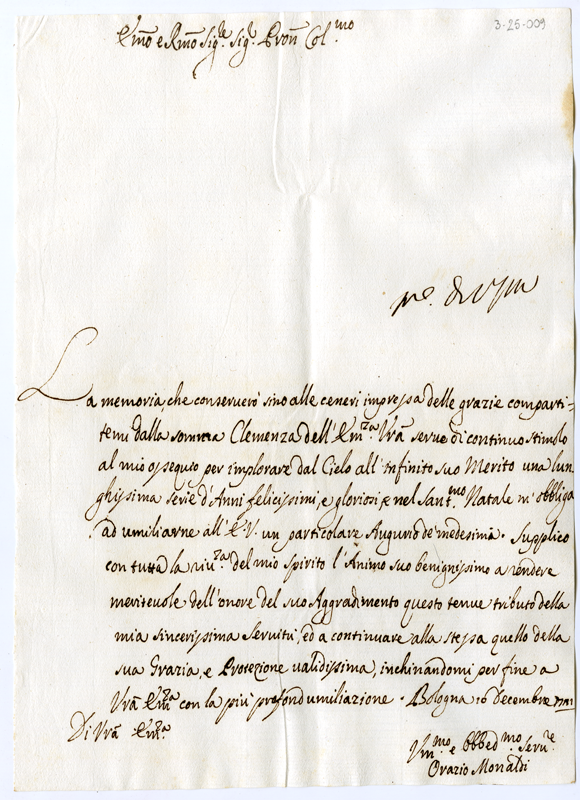 3-25-009
Em̃o e Rm̃o Sig.re Sig.r Pron Col.mo
La memoria, che conserverò sino alle ceneri impressa delle grazie comparti=
temi dalla somma Clemenza dell'Em.za Vrã serve di continuo stimolo
al mio ossequio per implorare dal Cielo all'infinito suo Merito una lun
ghissima serie d'Anni felicissimi, e gloriosi; e nel Sant.mo Natale m'obbliga
ad umiliarne all'E.V. un particolare Augurio de' medesimi. Supplico
con tutta la del mio spirito l'Animo suo benignissimo a rendere
meritevole dell'onore del suo Aggradimento questo tenue tributo della
mia sincerissima Servitù, ed a continuare alla stessa quello della
sua Grazia, e Protezione validissima, inchinandomi per fine a
Vrã Em.za con la più profond umiliazione. Bologna 16 decembre
Di Vrã Em.za
Um.mo e Obbed.mo Serv.re
Orazio Monaldi